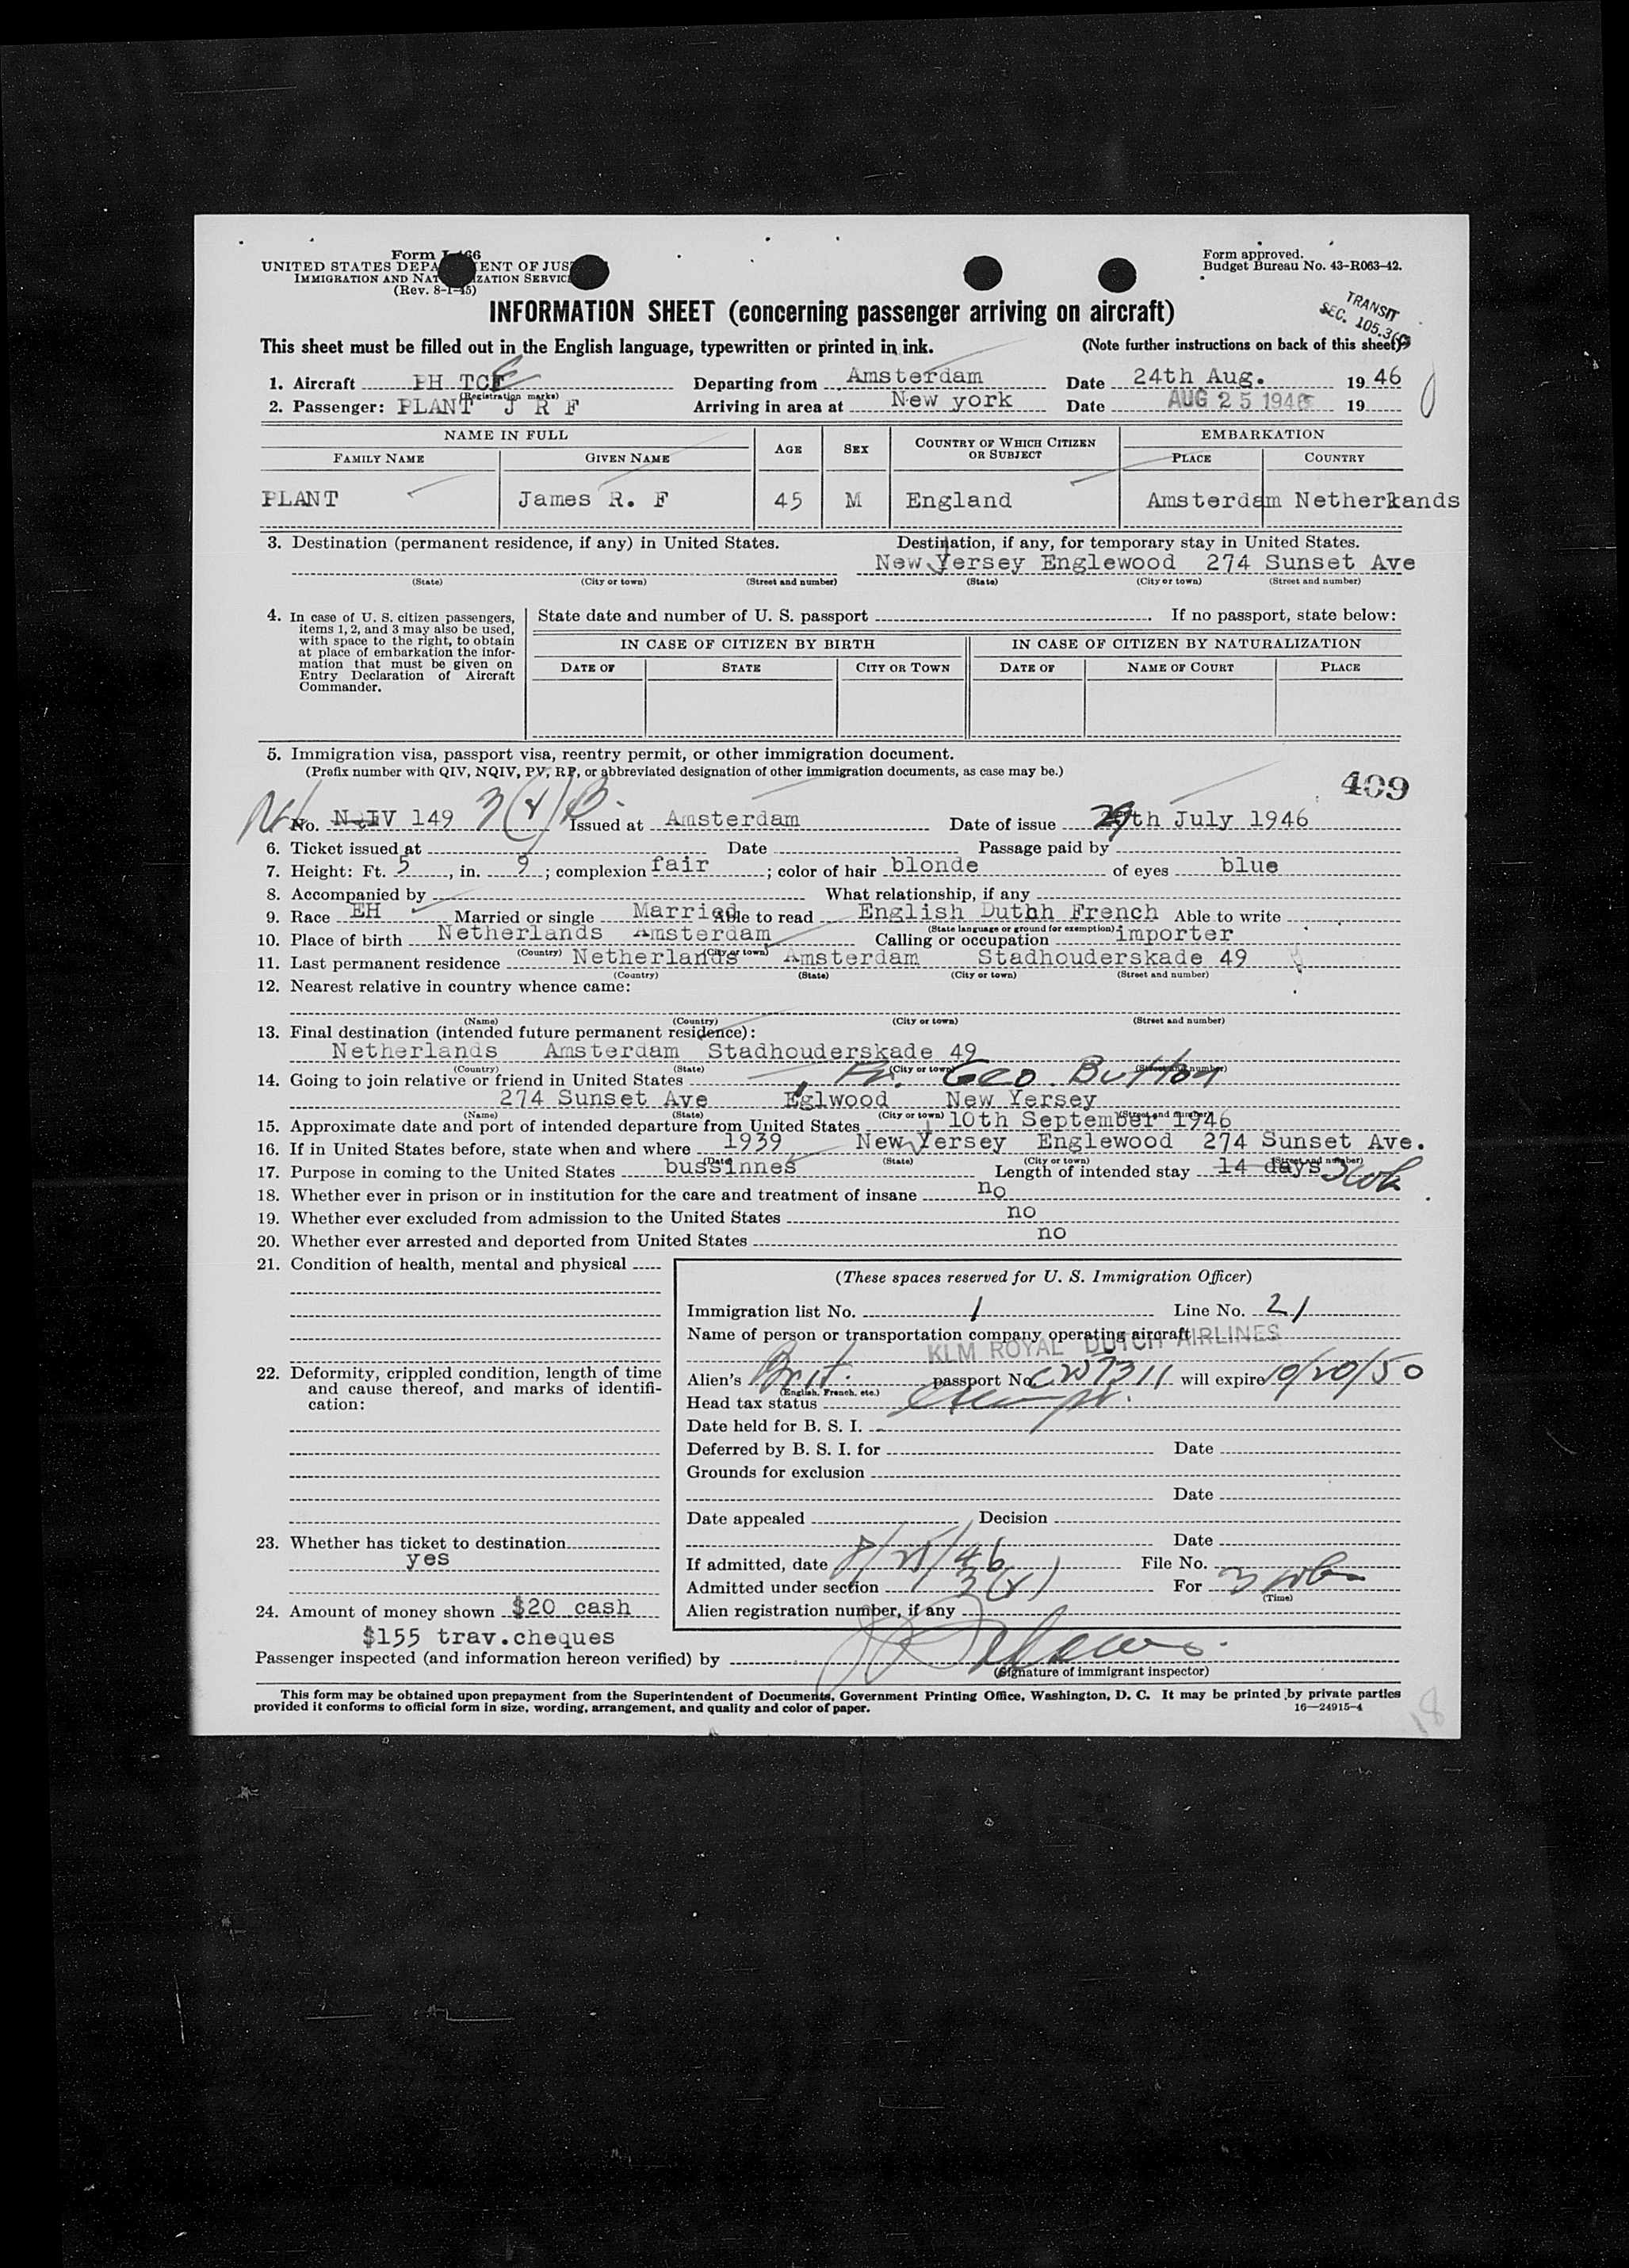 Form I-466
UNITED STATES DEPARTMENT OF JUSTICE
IMMIGRATION AND NATURALIZATION SERVICE
(Rev. 8-1-45)
Form approved.
Budget Bureau No. 43-R063-42.
INFORMATION SHEET (concerning passenger arriving on aircraft)
TRANSIT
SEC. 105.3
This sheet must be filled out in the English language, typewritten or printed in ink. (Note further instructions on back of this sheet)
1. Aircraft PH TCE Departing from Amsterdam Date 24th Aug. 1946
(Registration marks)
2. Passenger: PLANT J R F Arriving in area at New york Date AUG 25 1946 19
NAME IN FULL AGE SEX COUNTRY OF WHICH CITIZEN OR SUBJECT EMBARKATION
FAMILY NAME GIVEN NAME PLACE COUNTRY
PLANT James R. F 45 M England Amsterdam Netherkands
3. Destination (permanent residence, if any) in United States. Destination, if any, for temporary stay in United States.
New Yersey Englewood 274 Sunset Ave
(State) (City or town) (Street and number) (State) (City or town) (Street and number)
4. In case of U. S. citizen passengers, items 1, 2, and 3 may also be used, with space to the right, to obtain at place of embarkation the information that must be given on Entry Declaration of Aircraft Commander.
State date and number of U. S. passport . If no passport, state below:
IN CASE OF CITIZEN BY BIRTH IN CASE OF CITIZEN BY NATURALIZATION
DATE OF STATE CITY OR TOWN DATE OF NAME OF COURT PLACE
5. Immigration visa, passport visa, reentry permit, or other immigration document.
(Prefix number with QIV, NQIV, PV, RP, or abbreviated designation of other immigration documents, as case may be.)
409
No. NQIV 149 Issued at Amsterdam Date of issue 29th July 1946
6. Ticket issued at Date Passage paid by
7. Height: Ft. 5, in. 9; complexion fair; color of hair blonde of eyes blue
8. Accompanied by What relationship, if any
9. Race EH Married or single Married Able to read English Duthh French Able to write
(State language or ground for exemption)
10. Place of birth Netherlands Amsterdam Calling or occupation importer
(Country) (City or town)
11. Last permanent residence Netherlands Amsterdam Stadhouderskade 49
(Country) (State) (City or town) (Street and number)
12. Nearest relative in country whence came:
(Name) (Country) (City or town) (Street and number)
13. Final destination (intended future permanent residence):
Netherlands Amsterdam Stadhouderskade 49
(Country) (State) (City or town) (Street and number)
14. Going to join relative or friend in United States Fr. Geo. Button
274 Sunset Ave Eglwood New Yersey
(Name) (State) (City or town) (Street and number)
15. Approximate date and port of intended departure from United States 10th September 1946
16. If in United States before, state when and where 1939 New Yersey Englewood 274 Sunset Ave.
(Date) (State) (City or town) (Street and number)
17. Purpose in coming to the United States bussinnes Length of intended stay 14 days
18. Whether ever in prison or in institution for the care and treatment of insane no
19. Whether ever excluded from admission to the United States no
20. Whether ever arrested and deported from United States no
21. Condition of health, mental and physical
22. Deformity, crippled condition, length of time and cause thereof, and marks of identification:
23. Whether has ticket to destination
yes
24. Amount of money shown $20 cash
$155 trav.cheques
(These spaces reserved for U. S. Immigration Officer)
Immigration list No. 1 Line No. 21
Name of person or transportation company operating aircraft
KLM ROYAL DUTCH AIRLINES
Alien's Brit. passport No. CW7311 will expire 10/20/50
(English, French, etc.)
Head tax status Exempt.
Date held for B. S. I.
Deferred by B. S. I. for Date
Grounds for exclusion
Date
Date appealed Decision
Date
If admitted, date 8/25/46 File No.
Admitted under section 3(2) For 3 wks
(Time)
Alien registration number, if any
Passenger inspected (and information hereon verified) by
(Signature of immigrant inspector)
This form may be obtained upon prepayment from the Superintendent of Documents, Government Printing Office, Washington, D. C. It may be printed by private parties
provided it conforms to official form in size, wording, arrangement, and quality and color of paper. 16—24915-4
18